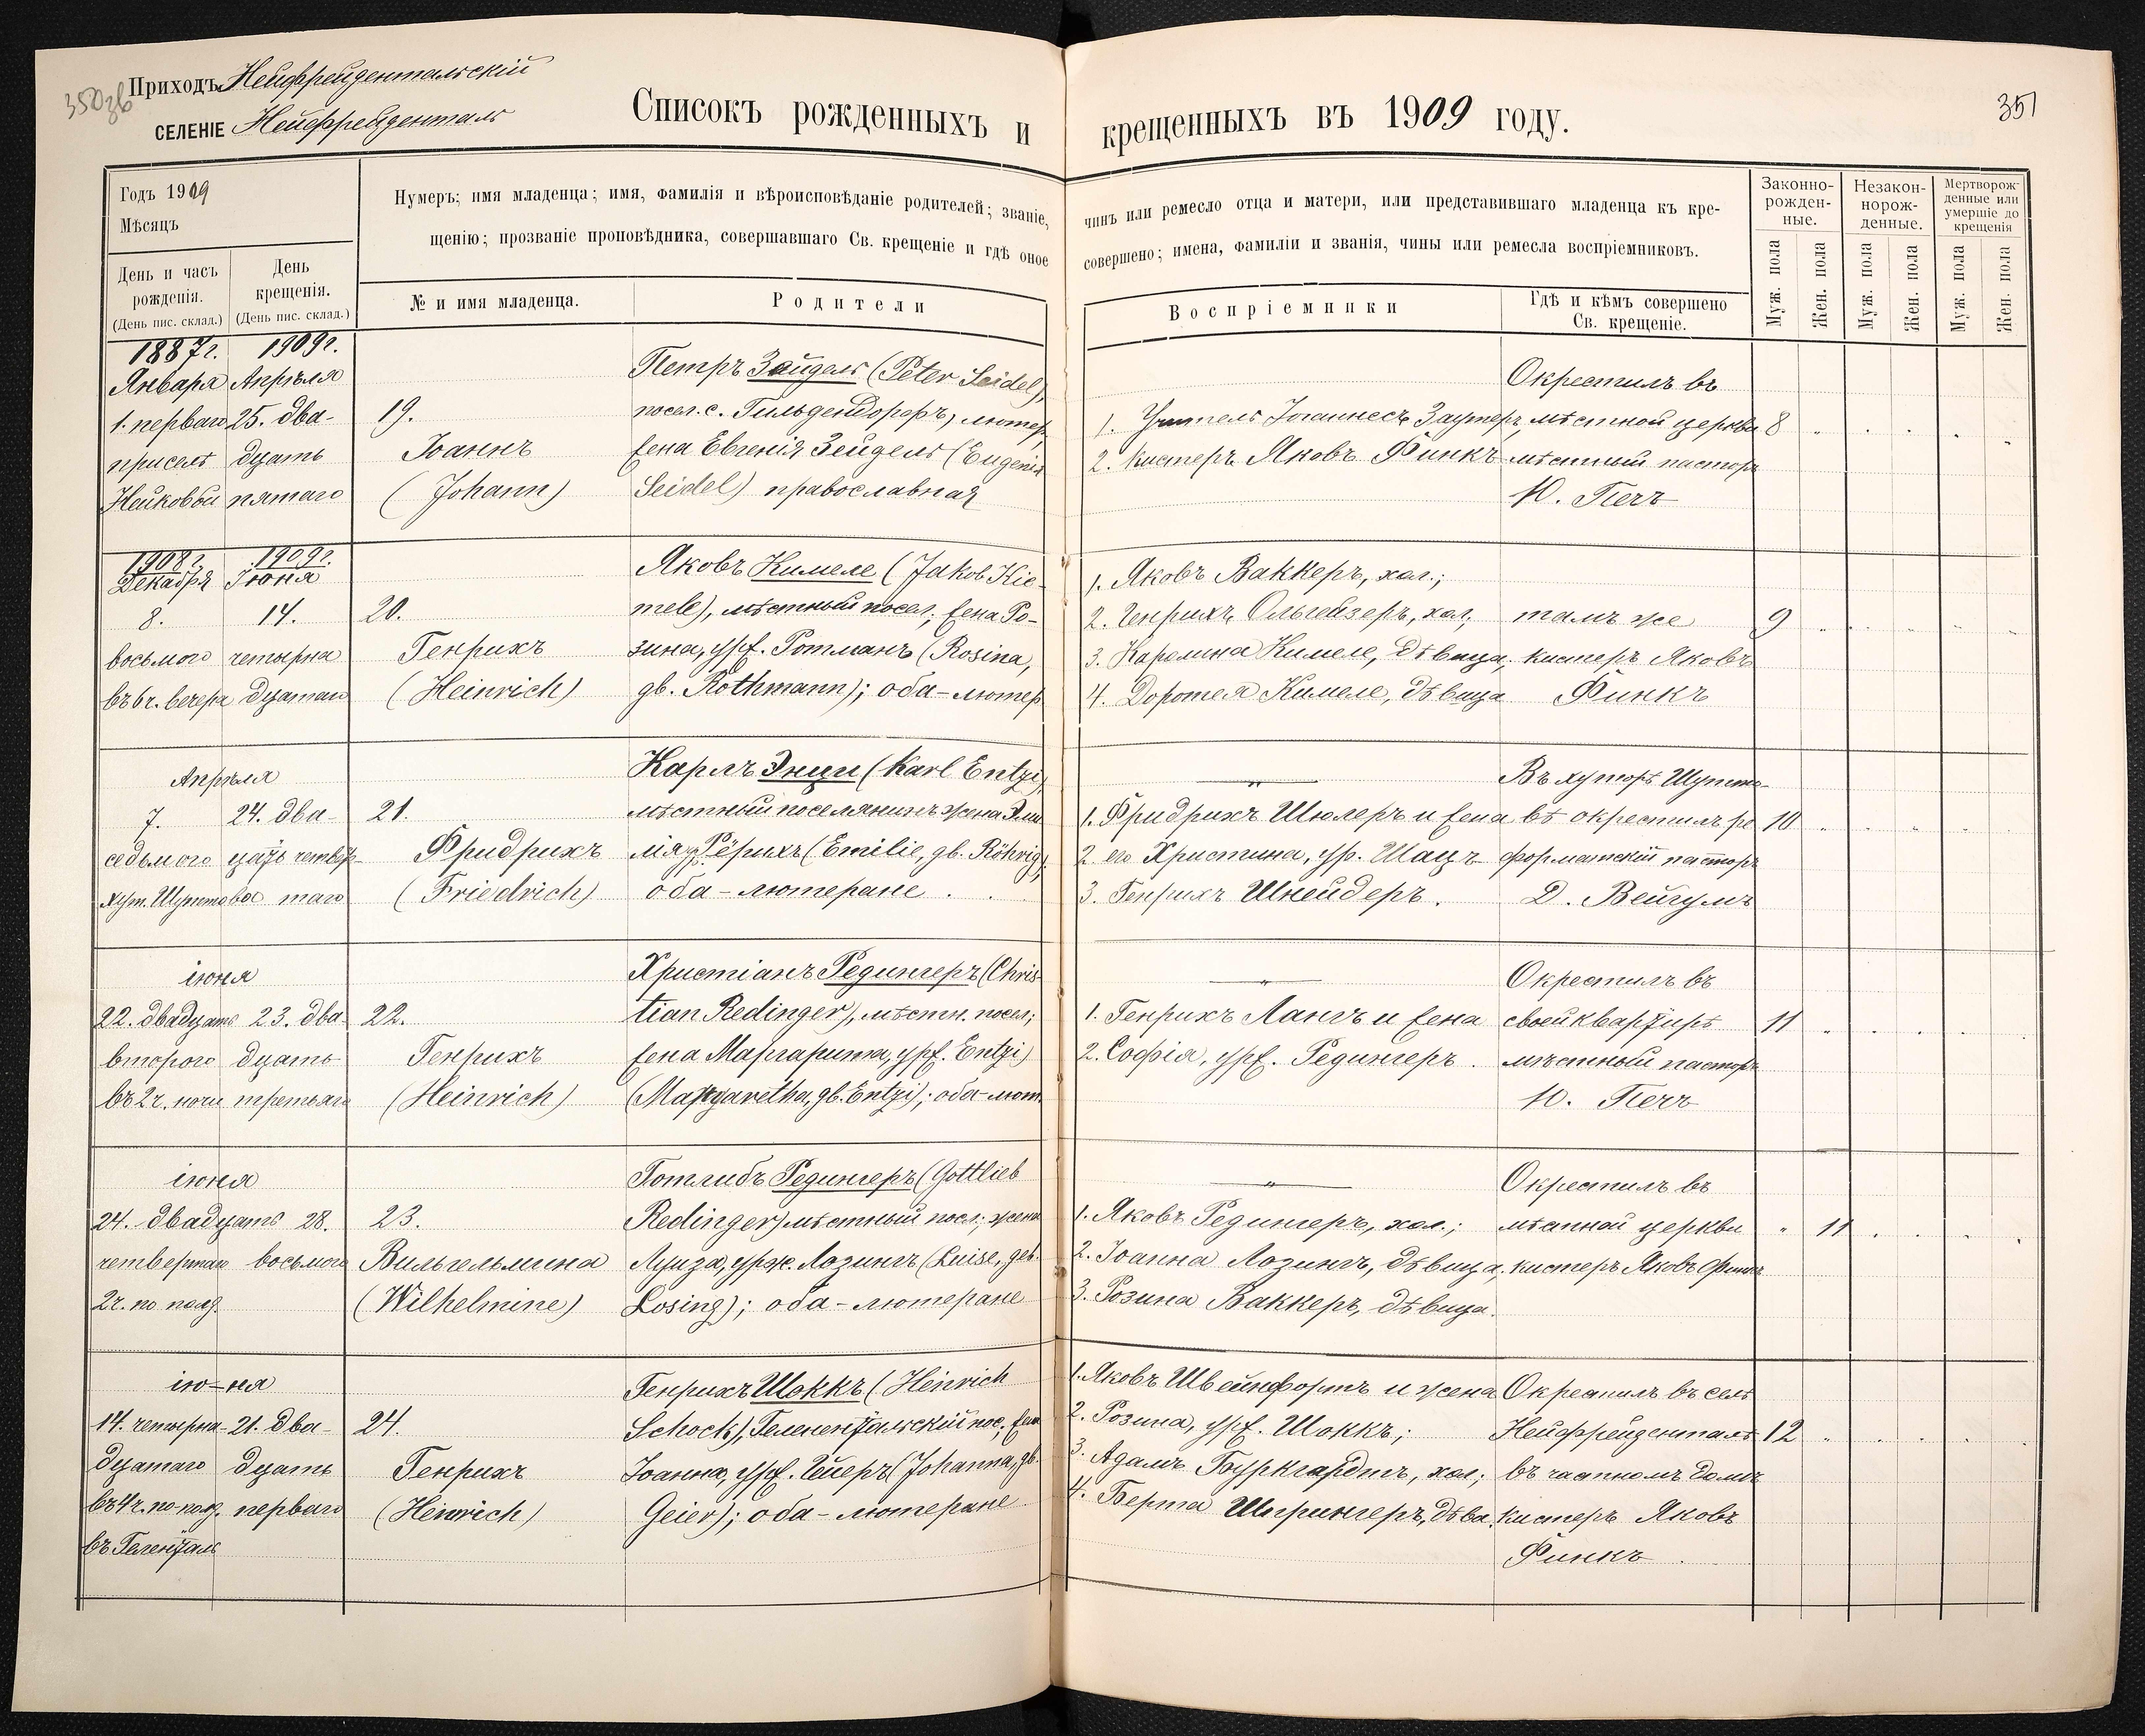 350зв
Приходъ Нейфрейдентальскій
СЕЛЕНІЕ Нейфрейденталь
Списокъ рожденныхъ и крещенныхъ въ 1909 году.
351
Годъ 1909
Мѣсяцъ
День и часъ рожденія.
(День пис. склад.)
День крещенія.
(День пис. склад.)
Нумеръ; имя младенца; имя, фамилія и вѣроисповѣданіе родителей; званіе, чинъ или ремесло отца и матери, или представившаго младенца къ кре-
щенію; прозваніе проповѣдника, совершавшаго Св. крещеніе и гдѣ оное совершено; имена, фамиліи и званія, чины или ремесла воспріемниковъ.
№ и имя младенца.
Родители
Воспріемники
Гдѣ и кѣмъ совершено
Св. крещеніе.
Законно-
рожден-
ные.
Незакон-
норож-
денные.
Мертворож-
денные или
умершіе до
крещенія
Муж. пола
Жен. пола
Муж. пола
Жен. пола
Муж. пола
Жен. пола
1887г.
Января
1. перваго
при селѣ
1909г.
Апрѣля
25. два-
дцать
пятаго
19.
Іоаннъ
(Johann)
Петръ Зайдель (Peter Seidel),
посел. с. Гильдендорфъ, лютер
жена Евгенія Зейдель (Eugenia
Seidel) православная
1. Учитель Іоаннесъ Заутеръ,
2. Кистеръ Яковъ Финкъ
Окрестилъ въ
мѣстной церкви
мѣстный пасторъ
Ю. Печъ
8
1908г.
Декабря
8.
восьмого
въ 6ч. вечера
1909г.
Іюня
14.
четырна
дцатаго
20.
Генрихъ
(Heinrich)
Яковъ Кимеле (Jakob Kie-
mele), мѣстный посел; жена Ро-
зина, урж. Ротманъ (Rosina,
gb. Rothmann); оба-лютер
1. Яковъ Ваккеръ, хол.;
2. Генрихъ Ольгейзеръ, хол;
3. Каролина Кимеле, дѣвица;
4. Доротея Кимеле, дѣвица
тамъ же
кистеръ Яковъ
Финкъ
9
Апрѣля
7.
седьмого
хут. Шуттово
24. два-
цать четвер
таго
21.
Фридрихъ
(Friedrich)
Карлъ Энци (Karl Entzi),
мѣстный поселянинъ жена Эми
лія, ур. Рёрихъ (Emilie, gb. Röhrig);
оба-лютеране
1. Фридрихъ Шюлеръ и жена
2. его Христина, ур. Шацъ
3. Генрихъ Шнейдеръ.
Въ хуторѣ Шутто-
вѣ окрестилъ ре
форматскій пасторъ
Д. Вейгумъ
10
іюня
22. двадцать
второго
въ 2ч. ночи
23. два
дцать
третьяго
22.
Генрихъ
(Heinrich)
Христіанъ Редингеръ (Chris
tian Redinger), мѣстн. посел;
жена Маргарита, урж. Entzi)
(Margaretha, gb. Entzi); оба-лют.
1. Генрихъ Лангъ и жена
2. Софія, урж. Редингеръ.
Окрестилъ въ
своей квартирѣ
мѣстный пасторъ
Ю. Печъ
11
іюня
24. двадцать
четвертаго
2ч. по полд.
28.
восьмого
23.
Вильгельмина
(Wilhelmine)
Готлибъ Редингеръ (Gottlieb
Redinger) мѣстный посел; жена
Луиза, урж. Лозингъ (Luise, geb.
Losing); оба-лютеране
1. Яковъ Редингеръ, хол.;
2. Іоанна Лозингъ, дѣвица;
3. Розина Ваккеръ, дѣвица.
Окрестилъ въ
мѣстной церкви
кистеръ Яковъ Финкъ
11
ію-ня
14. четырна-
дцатаго
въ 4ч. по-полд.
въ Геленталѣ
21. два-
дцать
перваго
24.
Генрихъ
(Heinrich)
Генрихъ Шоккъ (Heinrich
Schock), Геленентальскій пос.; жена
Іоанна, урж. Гейеръ (Johanna, gb.
Geier); оба-лютеране
1. Яковъ Швейнфортъ и жена
2. Розина, урж. Шоккъ;
3. Адамъ Буркгардтъ, хол;
4. Берта Шпрингеръ, дѣва.
Окрестилъ въ селѣ
Нейфрейденталѣ
въ частномъ домѣ
кистеръ Яковъ
Финкъ.
12